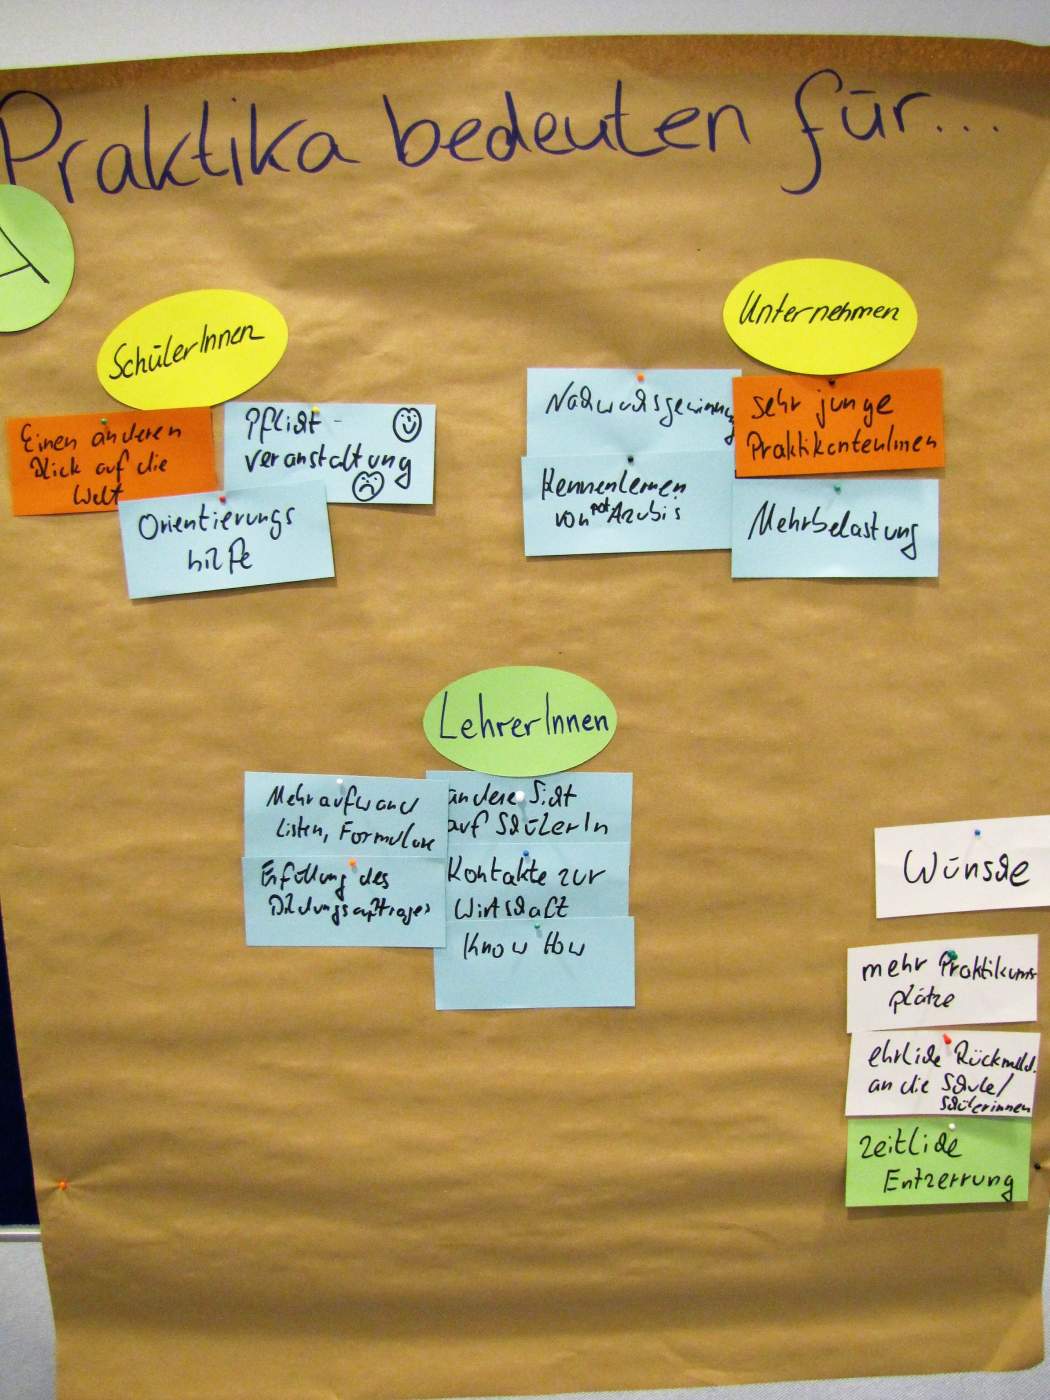 Praktika bedeuten für...
A
SchülerInnen
Einen anderen
Blick auf die
Welt
Pflicht-
veranstaltung
Orientierungs
hilfe
Unternehmen
Nachwuchsgewinnung
Kennenlernen
von pot Azubis
sehr junge
PraktikantenInnen
Mehrbelastung
LehrerInnen
Mehraufwand
Listen, Formulare
Erfüllung des
Bildungsauftrages
andere Sicht
auf SchülerIn
Kontakte zur
Wirtschaft
Know How
Wünsche
mehr Praktikums
plätze
ehrliche Rückmeld.
an die Schule/
Schülerinnen
zeitliche
Entzerrung